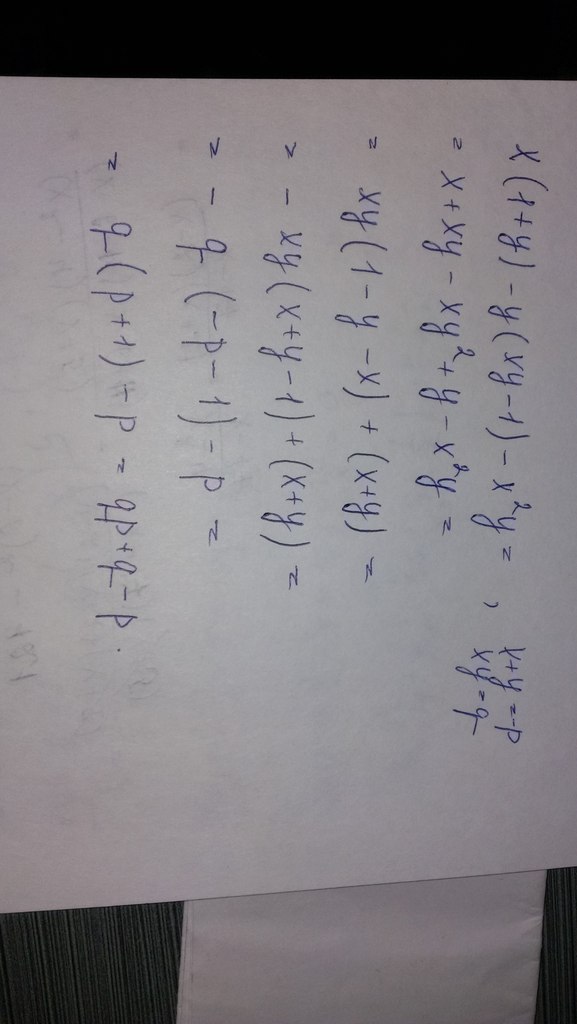 x(1+y) - y(xy-1) - x²y = , x+y = -p
xy = q
= x + xy - xy² + y - x²y =
= xy(1 - y - x) + (x+y) =
= - xy(x+y-1) + (x+y) =
= - q(-p-1) - p =
= q(p+1) - p = qp+q-p.